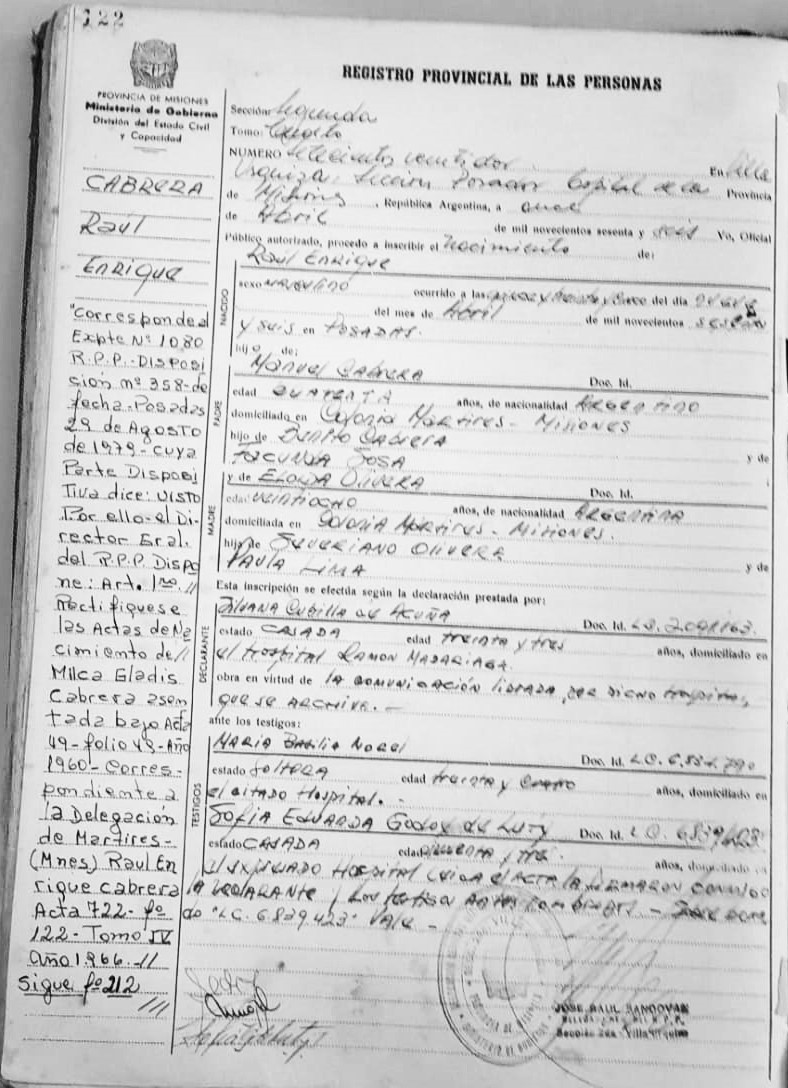 122
PROVINCIA DE MISIONES
Ministerio de Gobierno
División del Estado Civil
y Capacidad
CABRERA
Raúl
Enrique
"Corresponde al
Expte Nº 1080
R.P.P.-Disposi
ción nº 358-de
fecha-Posadas
29 de Agosto
de 1979-cuya
Parte Disposi
Tiva dice: VISTO
Por ello-el Di-
rector Gral.
del R.P.P. Dispo
ne: Art. 1ro. //
Rectifiquese
las Actas de Na
cimiento de //
Milca Gladis
Cabrera asen
tada bajo Acta
49-folio 49-Año
1960-Corres-
pondiente a
la Delegación
de Martires-
(Mnes) Raul En
rique Cabrera
Acta 722-fº
122-Tomo IV
Año 1966-//
Sigue fº 212
///
REGISTRO PROVINCIAL DE LAS PERSONAS
Sección: Segunda
Tomo: Cuarto
NUMERO Setecientos veintidos En Villa
Urquiza: Sección Posadas Capital de la Provincia
de Misiones, República Argentina, a once
de Abril de mil novecientos sesenta y seis Yo, Oficial
Público autorizado, procedo a inscribir el Nacimiento de:
NACIDO
Raúl Enrique
sexo masculino ocurrido a las y treinta y cinco del día
del mes de Abril de mil novecientos sesenta
y seis en Posadas.
hijo de:
PADRE
Manuel Cabrera Doc. Id.
edad cuarenta años, de nacionalidad Argentino
domiciliado en Colonia Martires - Misiones
hijo de Benito Cabrera
y de
Facunda Sosa
MADRE
y de Eloida Olivera Doc. Id.
edad veintiocho años, de nacionalidad Argentina
domiciliada en Colonia Martires - Misiones.
hija de Severiano Olivera
y de
Paula Lima
Esta inscripción se efectúa según la declaración prestada por:
DECLARANTE
Silvana Cubilla de Acuña Doc. Id. L.C.
estado casada edad treinta y tres años, domiciliado en
el Hospital Ramon Madariaga.
obra en virtud de la comunicación librada por dicho Hospital,
que se archiva. -
ante los testigos:
TESTIGOS
Maria Basilia Doc. Id. L.C.
estado soltera edad treinta y cuatro años, domiciliado en
el citado Hospital. -
Sofia Eduarda Godoy de Luty Doc. Id. L.C.
estado casada edad años, domiciliado en
Hospital el acta la firmaron conmigo
la declarante y los testigos antes nombrados. -
do "L.C. 6.839.423" Vale -
JOSE RAUL SANDOVAL
Sección 2da. Villa Urquiza